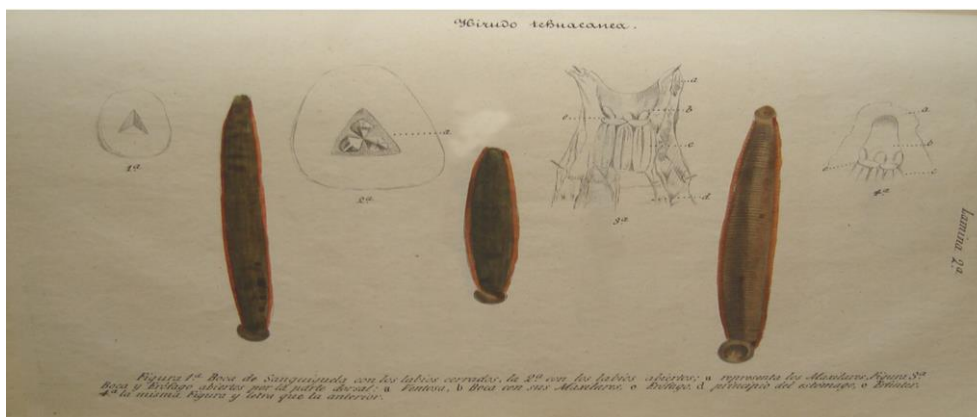 Hirudo tehuacanea.
a
b
e
c
d
a
a
b
c
1ª
2ª
3ª
4ª
Lamina 2ª
Figura 1ª Boca de Sanguijuela con los labios cerrados, la 2ª con los labios abiertos; a representa los Maxilares, Figura 3ª
Boca y Exófago abiertos por la parte dorsal; a Ventosa, b Boca con sus Maxilares, c Exófago, d principio del estomago, e
4ª la misma Figura y letra que la anterior.